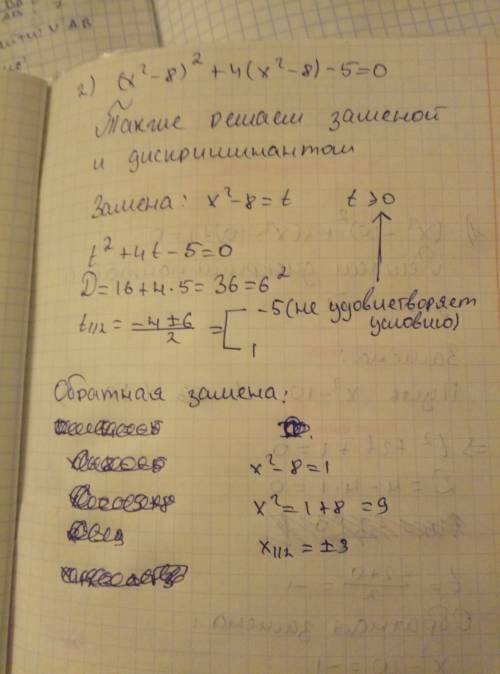 2) (x²-8)² + 4(x²-8)-5=0
Такие решаем заменой
и дискриминантом
Замена: x²-8=t t≥0
t²+4t-5=0
D=16+4·5=36=6²
t₁,₂ = (-4±6)/2 = [ -5 (не удовлетворяет условию)
1
Обратная замена:
x²-8=1
x²=1+8=9
x₁,₂=±3